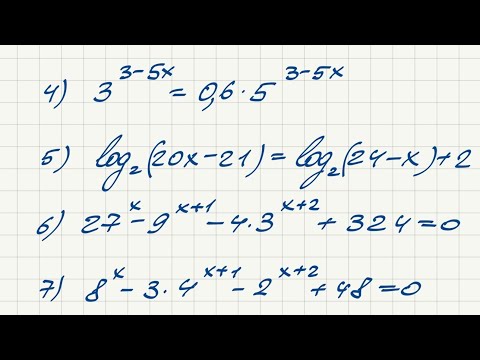 4) 3^(3-5x) = 0,6·5^(3-5x)
5) log₂(20x-21) = log₂(24-x)+2
6) 27^x - 9^(x+1) - 4·3^(x+2) + 324 = 0
7) 8^x - 3·4^(x+1) - 2^(x+2) + 48 = 0